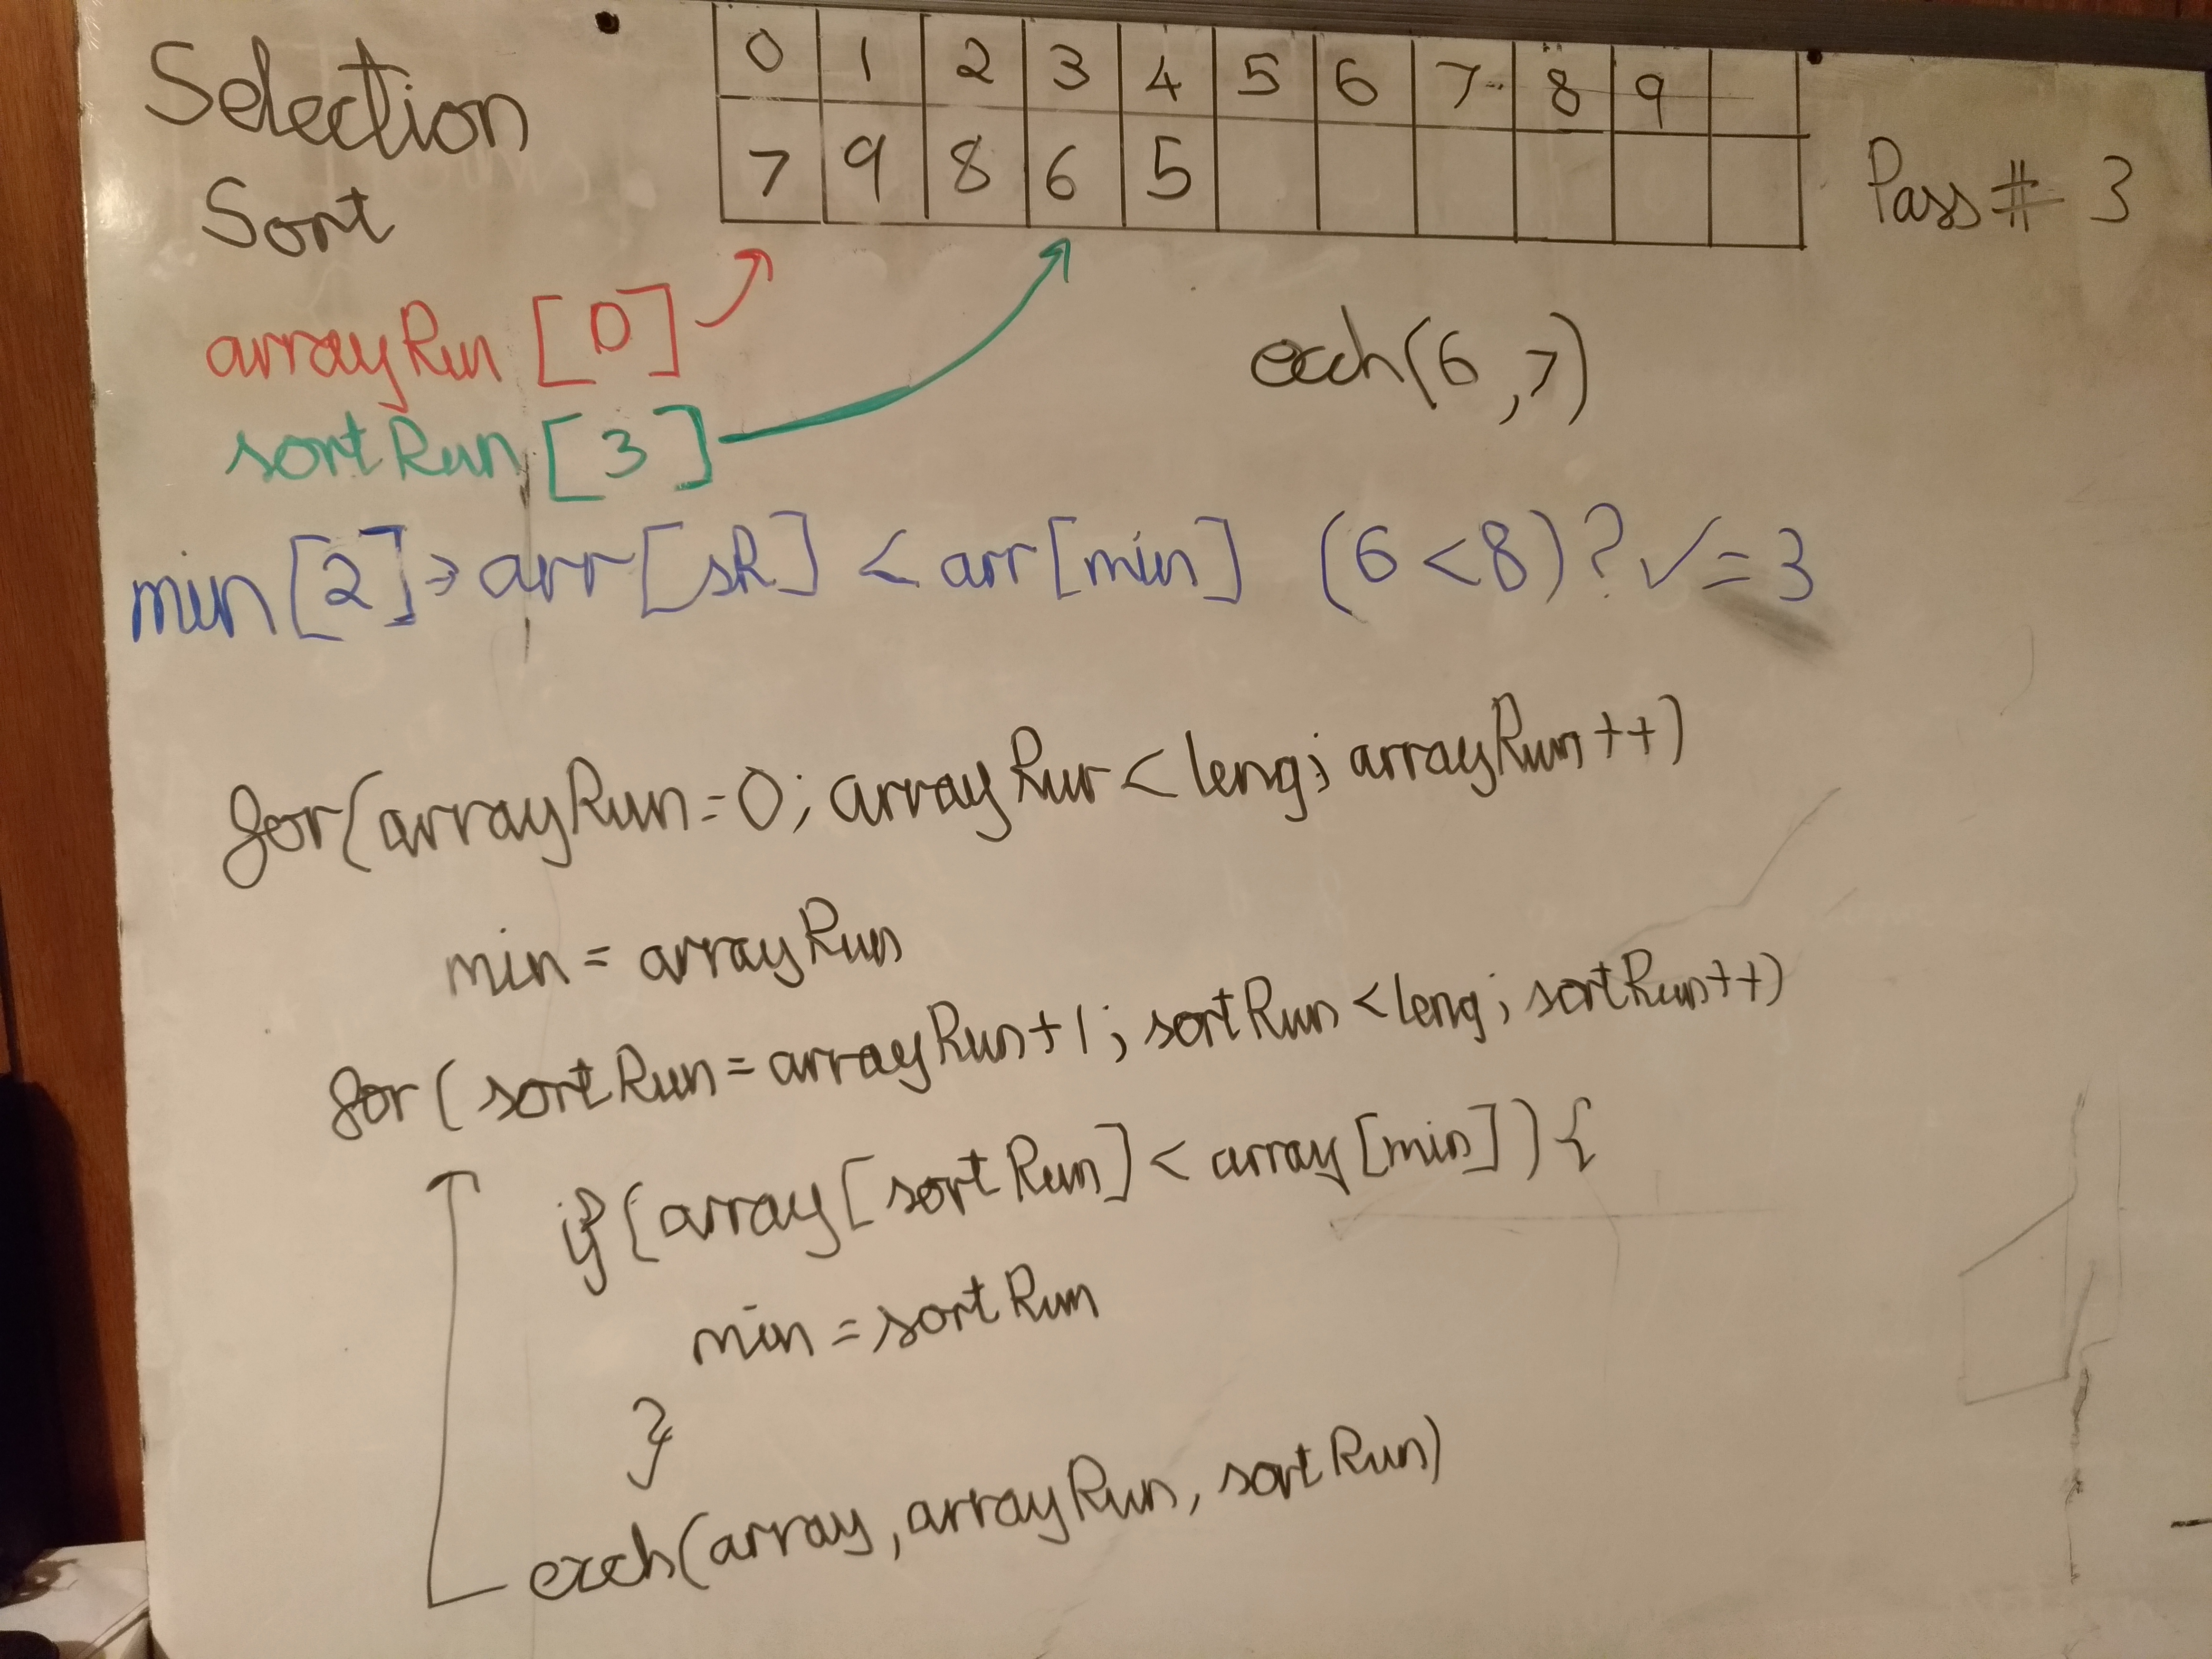 Selection
Sort
0 1 2 3 4 5 6 7 8 9
7 9 8 6 5
Pass # 3
arrayRun [0]
exch(6,7)
sortRun [3]
min[2]→arr[sR] < arr[min] (6<8)?✓=3
for(arrayRun=0; arrayRun<leng; arrayRun++)
min = arrayRun
for(sortRun=arrayRun+1; sortRun<leng; sortRun++)
if(array[sortRun]<array[min]){
min=sortRun
}
exch(array,arrayRun,sortRun)